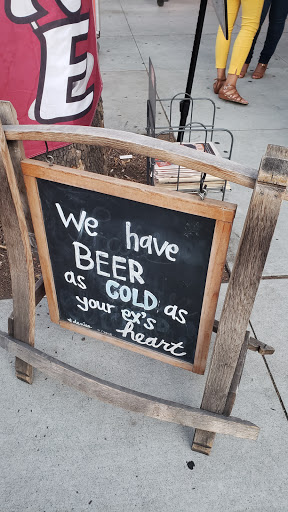 NE
We have
BEER
as COLD as
your ex's
heart